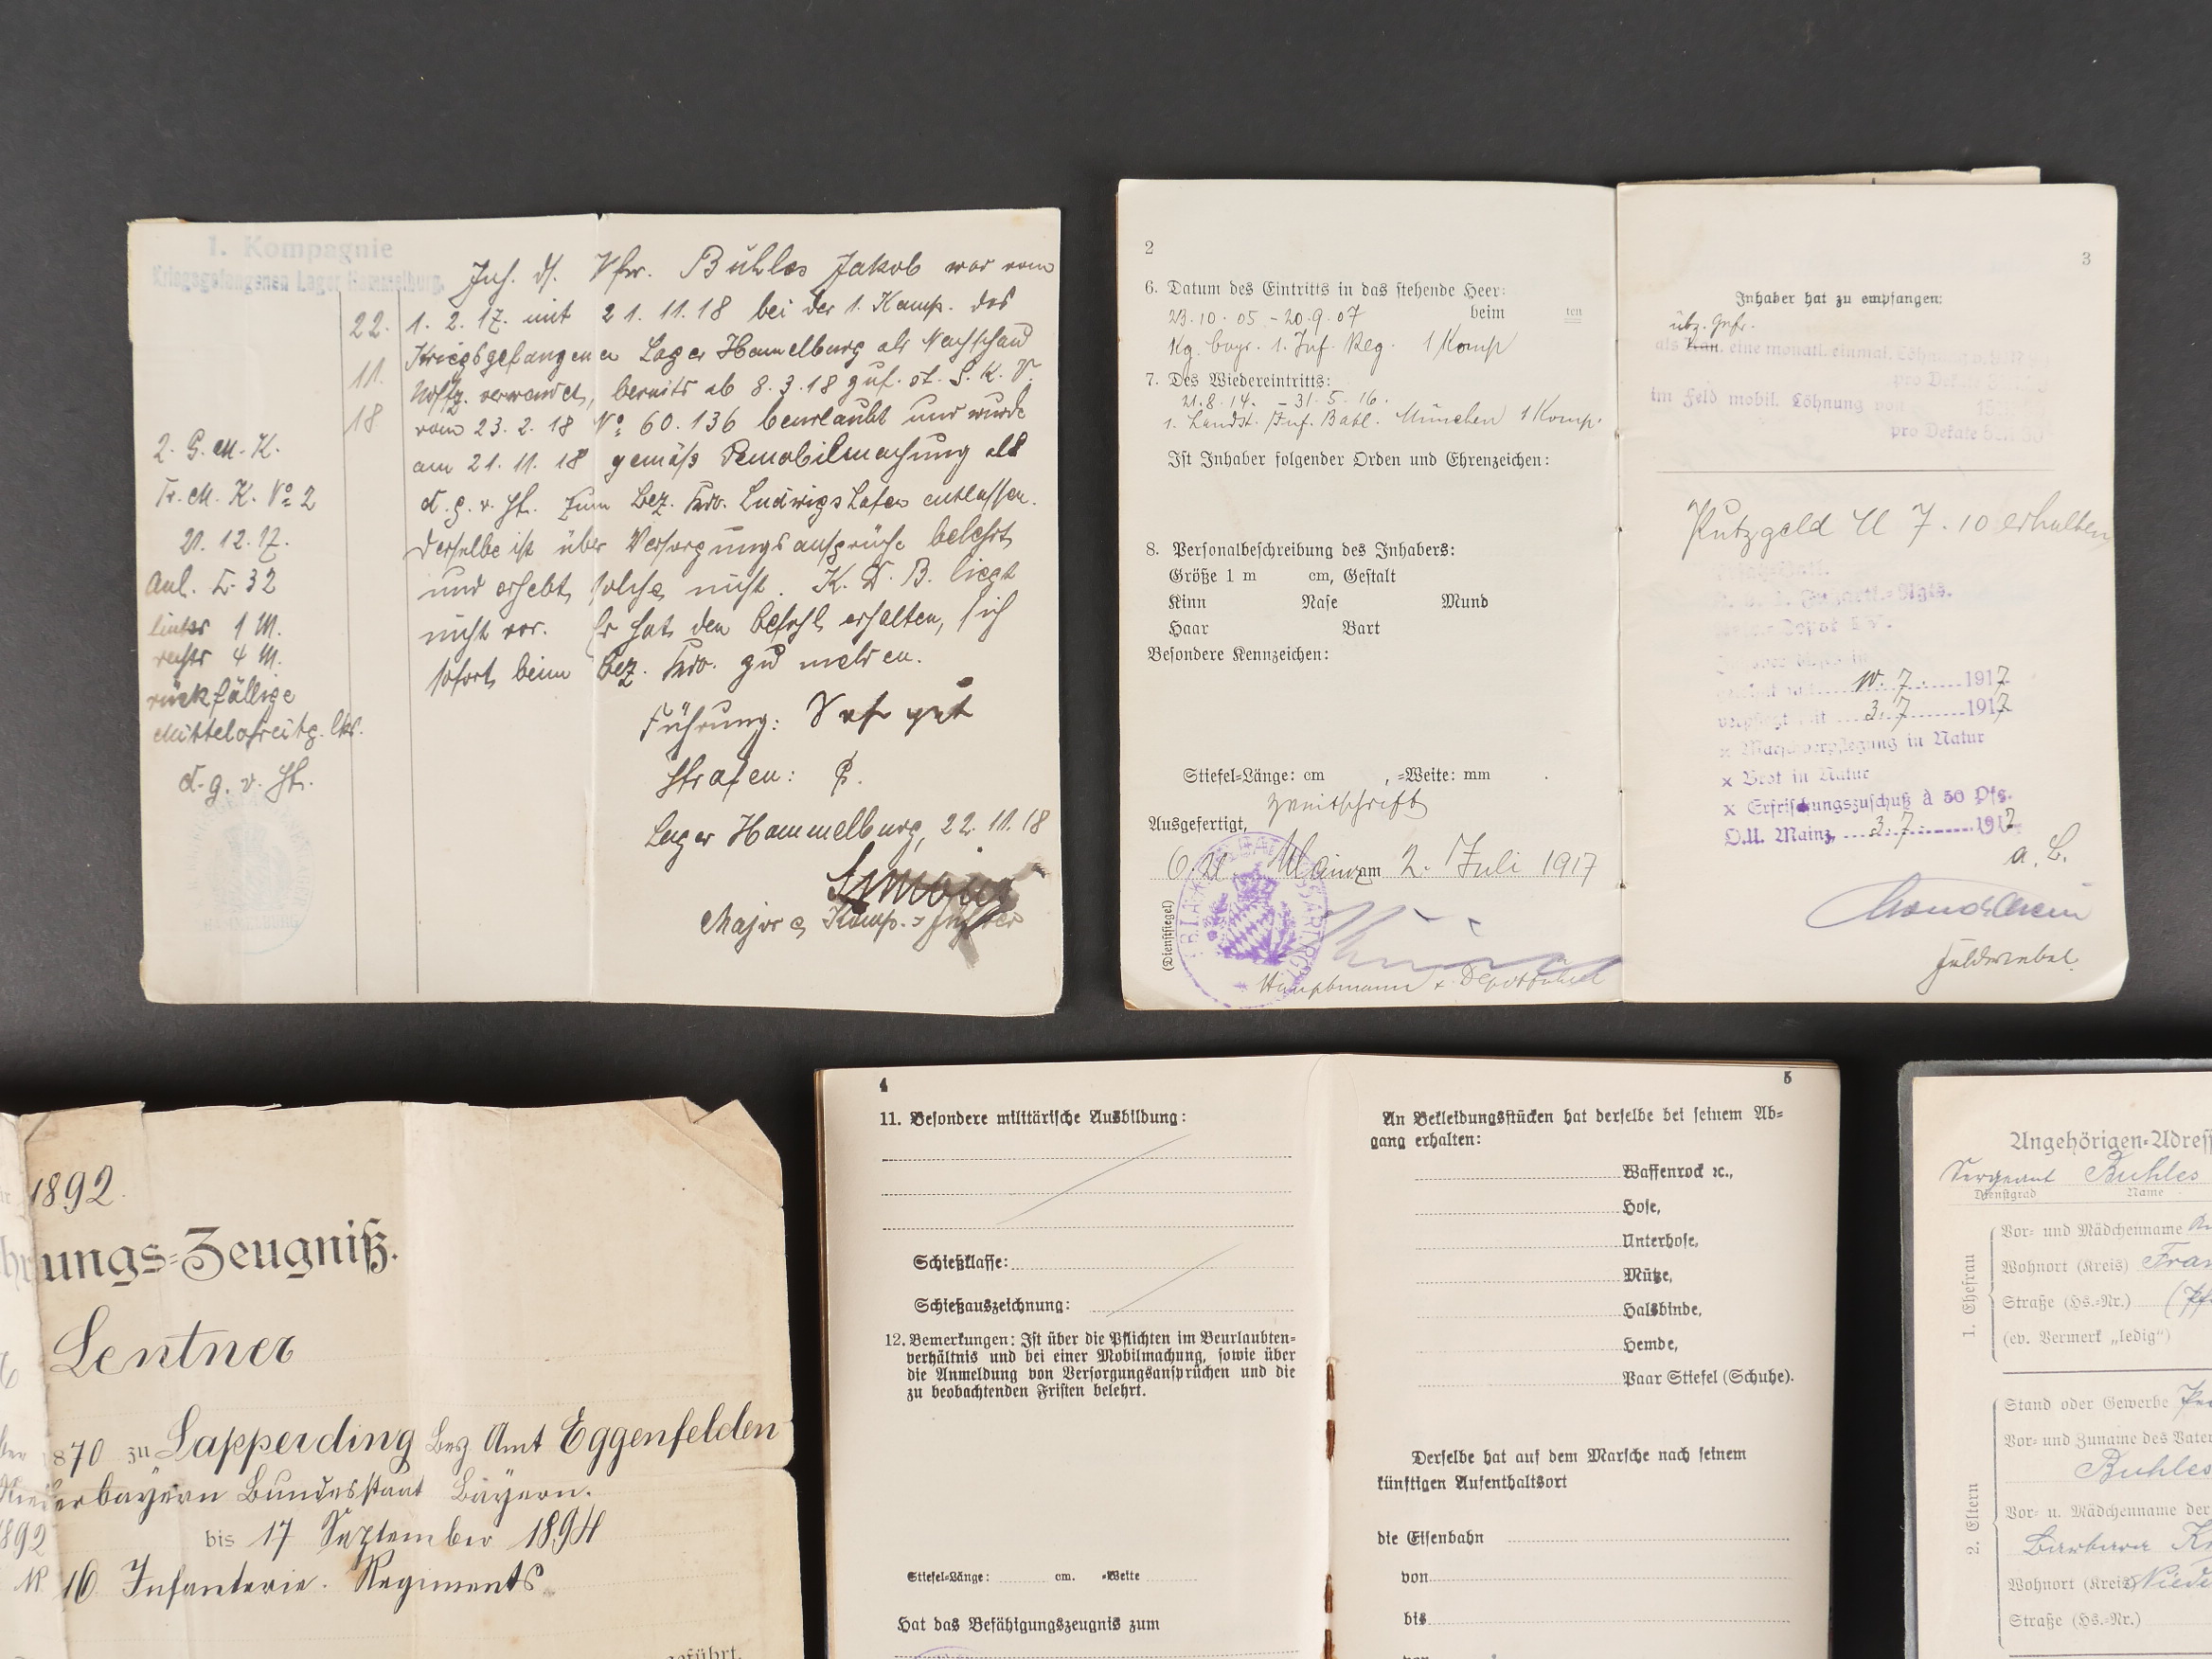 1. Kompagnie
Kriegsgefangenen Lager Hammelburg.
22.
11.
18
2. G. M. K.
Tr. M. K. No 2
21. 12. 17.
Anl. L. 32
links 1 M.
rechts 4 M.
rückfällige
Mittelohreitg. lks.
d. g. v. H.
Inh. ds. Buhles Jakob war vom
1. 2. 17. mit 21. 11. 18 bei der 1. Komp. des
Kriegsgefangenen Lager Hammelburg als
Uoffz. verwendet, bereits ab 8. 3. 18 zuf. st. G. K. V.
vom 23. 2. 18 No 60.136 beurlaubt und wurde
am 21. 11. 18 gemäß Demobilmachung als
d. g. v. H. zum Bez. Kdo. Ludwigshafen entlassen.
Derselbe ist über Versorgungsansprüche belehrt
und erhebt solche nicht. K. D. B. liegt
nicht vor. Er hat den Befehl erhalten, sich
sofort beim Bez. Kdo. zu melden.
Führung: Sehr gut
Strafen:
Lager Hammelburg, 22. 11. 18
Major u. Komp.-Führer
2
6. Datum des Eintritts in das stehende Heer:
23. 10. 05 - 20. 9. 07 beim ten
Kg. bayr. 1. Inf. Reg. 1 Komp
7. Des Wiedereintritts:
21. 8. 14. - 31. 5. 16.
1. Landst. Inf. Batl. München 1 Komp.
Ist Inhaber folgender Orden und Ehrenzeichen:
8. Personalbeschreibung des Inhabers:
Größe 1 m cm, Gestalt
Kinn Nase Mund
Haar Bart
Besondere Kennzeichen:
Stiefel=Länge: cm , =Weite: mm .
Zweitschrift
Ausgefertigt,
O. U. Mainz am 2. Juli 1917
(Dienstsiegel)
Hauptmann u. Depotführer
3
Inhaber hat zu empfangen:
übz. Gefr.
als Kan. eine monatl. einmal. Löhnung v.
pro Dekade
im Feld mobil. Löhnung von
pro Dekade
Putzgeld M 7.10 erhalten
10. 7. 1917
verpflegt mit 3. 7. 1917
x Marschverpflegung in Natur
x Brot in Natur
x Erfrischungszuschuß à 50 Pfg.
O.U. Mainz, 3. 7. 1917
a. B.
Feldwebel.
1892.
ungs=Zeugniß.
Lentner
1870 zu Lapperding Bez Amt Eggenfelden
Niederbayern Bundesstaat Bayern.
1892 bis 17 September 1894
16 Infanterie. Regiments
geführt.
4
11. Besondere militärische Ausbildung:
Schießklasse:
Schießauszeichnung:
12. Bemerkungen: Ist über die Pflichten im Beurlaubten=
verhältnis und bei einer Mobilmachung, sowie über
die Anmeldung von Versorgungsansprüchen und die
zu beobachtenden Fristen belehrt.
Stiefel=Länge: cm. =Weite
Hat das Befähigungszeugnis zum
5
An Bekleidungsstücken hat derselbe bei seinem Ab=
gang erhalten:
Waffenrock ꝛc.,
Hose,
Unterhose,
Mütze,
Halsbinde,
Hemde,
Paar Stiefel (Schuhe).
Derselbe hat auf dem Marsche nach seinem
künftigen Aufenthaltsort
die Eisenbahn
von
bis
von
Angehörigen=Adress
Sergeant Buhles
Dienstgrad Name
1. Ehefrau
Vor= und Mädchenname
Wohnort (Kreis) Fran
Straße (Hs.=Nr.) (Pf
(ev. Vermerk „ledig")
2. Eltern
Stand oder Gewerbe
Vor= und Zuname des Vater
Buhles
Vor= u. Mädchenname der
Barbara
Wohnort (Kreis) Niede
Straße (Hs.=Nr.)